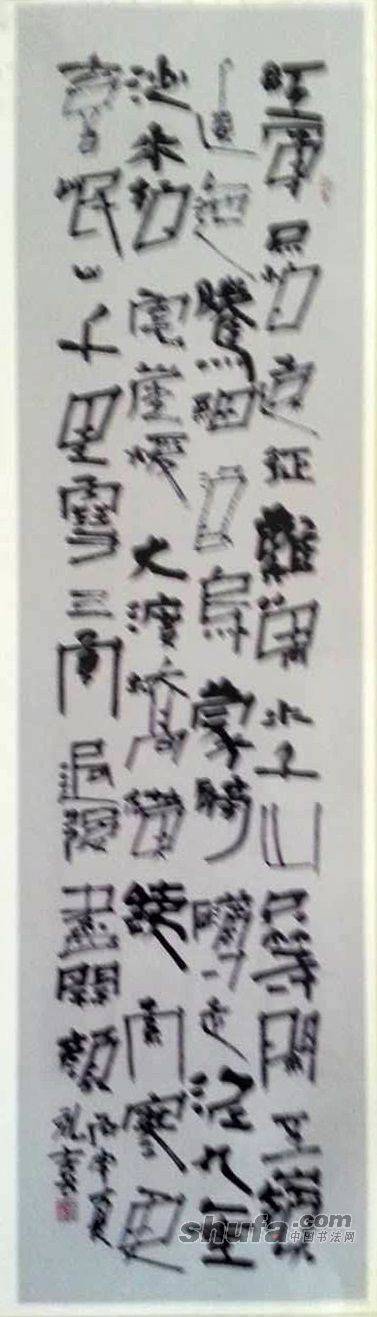 紅軍不怕遠征難萬水千山只等閑五嶺
逶迤騰細浪烏蒙磅礴走泥丸金
沙水拍雲崖暖大渡橋橫鐵索寒更
喜岷山千里雪三軍過後盡開顔
shufa.com
中国书法网